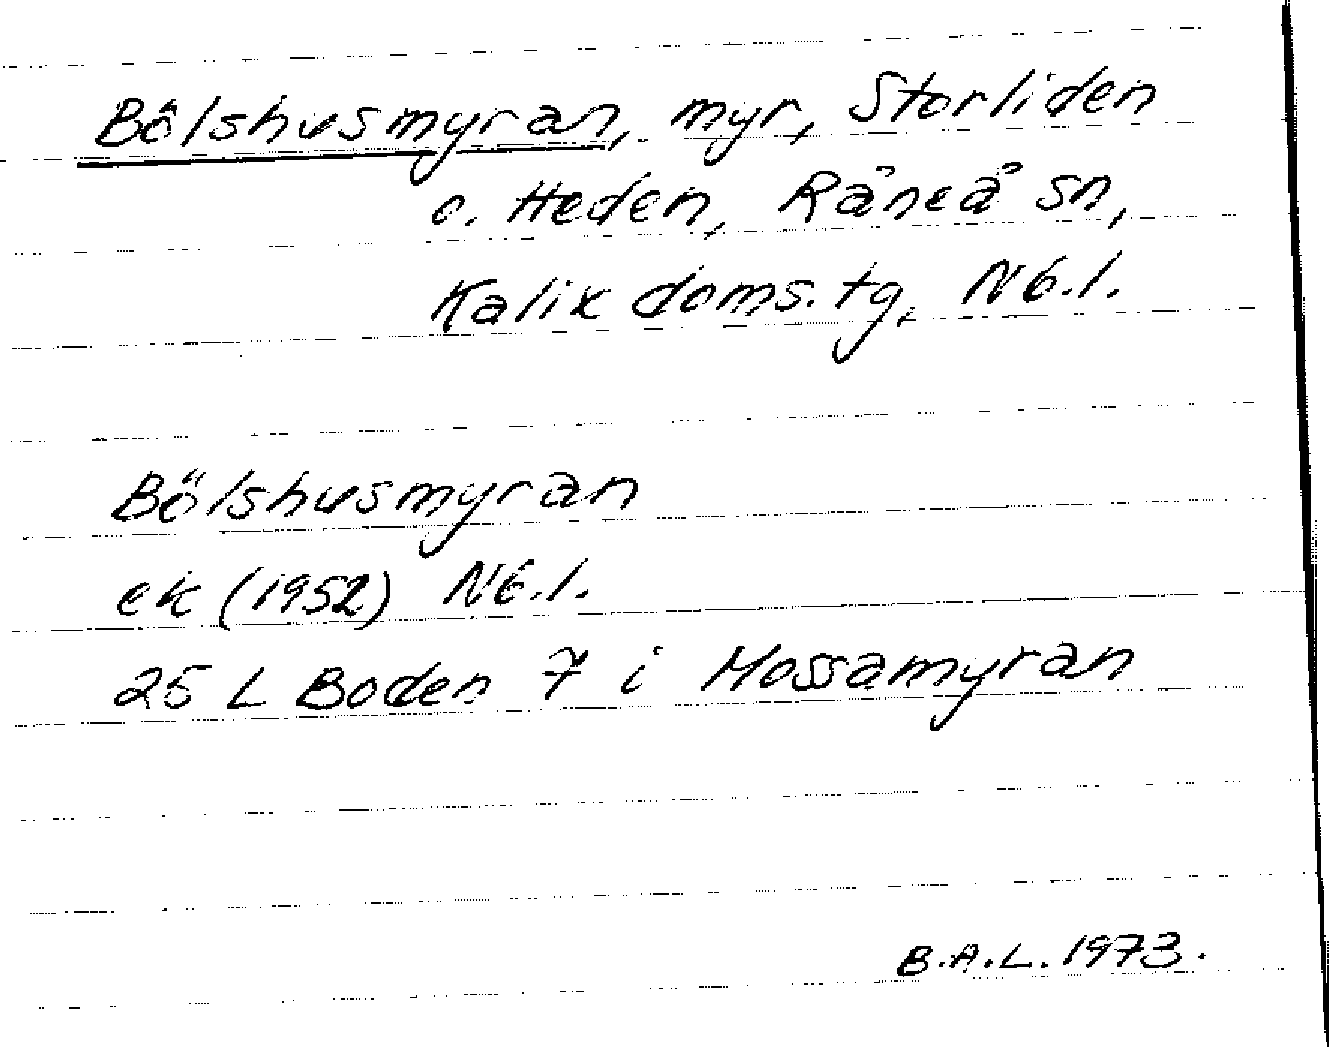 Bölshusmyran, myr, Storliden
o. Heden, Råneå sn,
Kalix doms. tg, Nb. l.
Bölshusmyran
ek (1952) Nb. l.
25 L Boden 7 i Mossamyran
B.A.L. 1973.